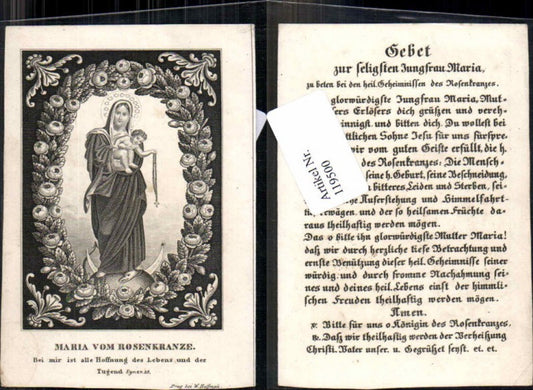 MARIA VOM ROSENKRANZE.
Bei mir ist alle Hoffnung des Lebens und der
Tugend
Prag bei W. Hoffmann
Gebet
zur seligsten Jungfrau Maria,
zu beten bei den heil. Geheimnissen des Rosenkranzes.
glorwürdigste Jungfrau Maria, Mut-
ers Erlösers dich grüßen und vereh-
innigst und bitten dich. Du wollest bei
ttlichen Sohne Jesu für uns fürspre
wir vom guten Geiste erfüllt, die h.
des Rosenkranzes: Die Mensch
seine h. Geburt, seine Beschneidung,
bitteres Leiden und Sterben, sei-
Auferstehung und Himmelfahrt
wägen, und der so heilsamen Früchte da-
raus theilhaftig werden mögen.
Das o bitte ihn glorwürdigste Mutter Maria!
daß wir durch herzliche liese Betrachtung und
ernste Benützung dieser heil. Geheimnisse seiner
würdig, und durch fromme Nachahmung sei-
nes und deines Lebens einst der himmli-
schen Freuden theilhaftig werden mögen.
Amen.
℣. Bitte für uns o Königin des Rosenkranzes.
℟. Daß wir theilhaftig werden der Verheißung
Christi. Vater unser. u. Gegrüßet seyst. et. et.
Artikel Nr.
119500